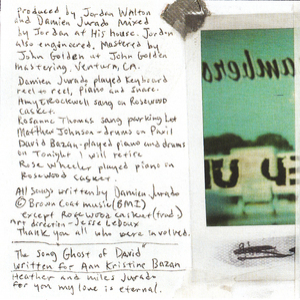 Produced by Jordan Walton
and Damien Jurado Mixed
by Jordan at His House. Jordan
also engineered. Mastered by
John Golden at John Golden
mastering. Ventura, CA.
Damien Jurado played Keyboard
reel on reel, piano and snare.
Amy Trockwell sang on Rosewood
casket.
Rosanne Thomas sang parking lot
Matthew Johnson - drums on Paxil
David Bazan - played piano and drums
on Tonight I will retire
Rose Wheeler played piano on
Rosewood casket.
All Songs written by Damien Jurado
© Brown Coat music (BMI)
except Rosewood casket (trad)
Art direction - Jesse LeDoux
Thank you all who were involved.
The song "Ghost of David"
written for Ann Kristine Bazan
Heather and miles Jurado
For you my love is eternal.